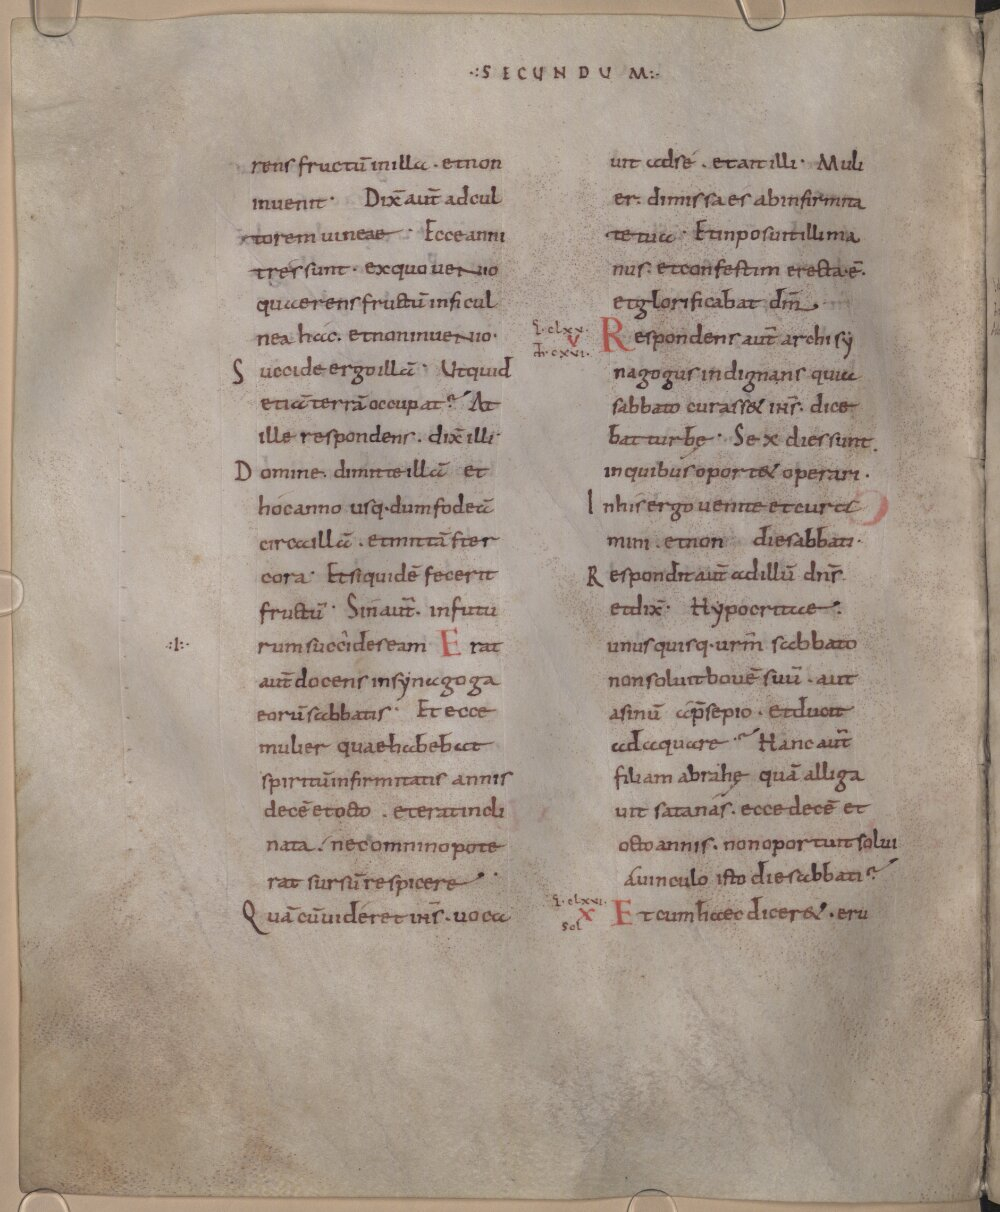 ·:SECUNDUM:·
rens fructū in illa · et non
inuenit · Dix̄ aut̄ ad cul
torem uineae · Ecce anni
tres sunt · ex quo uenio
quaerens fructū in ficul
nea hac · et non inuenio ·
Succide ergo illā · Ut quid
etiā terrā occupat? At
ille respondens · dix̄ illi ·
Domine · dimitte illā et
hoc anno usq· dum fodeā
circa illā · et mittā ster
cora · Et siquidē fecerit
fructū · Sin aut̄ · in futu
·:I:·
rum succides eam Erat
aut̄ docens in synagoga
eorū sabbatis · Et ecce
mulier quae habebat
spiritū infirmitatis annis
decē et octo · et erat incli
nata · nec omnino pote
rat sursū respicere ·
Quā cū uideret ihs̄ · uoca
uit ad se · et ait illi · Muli
er · dimissa es ab infirmita
te tua · Et inposuit illi ma
nus · et confestim erecta ē ·
et glorificabat dm̄ ·
L·clxx·
V
Respondens aut̄ archisy
nagogus indignans quia
sabbato curasset ihs̄ · dice
bat turbę · Sex dies sunt
in quibus oportet operari ·
In his ergo uenite et cura
mini · et non die sabbati ·
Respondit aut̄ ad illū dn̄s
et dix̄ · Hypocritae ·
unusquisq· ur̄m sabbato
non soluit bouē suū · aut
asinū a p̄sepio · et ducit
adaquare? Hanc aut̄
filiam abrahę quā alliga
uit satanas · ecce decē et
octo annis · non oportuit solui
a uinculo isto die sabbati?
L·clxxi·
X
sol
Et cum haec diceret · eru